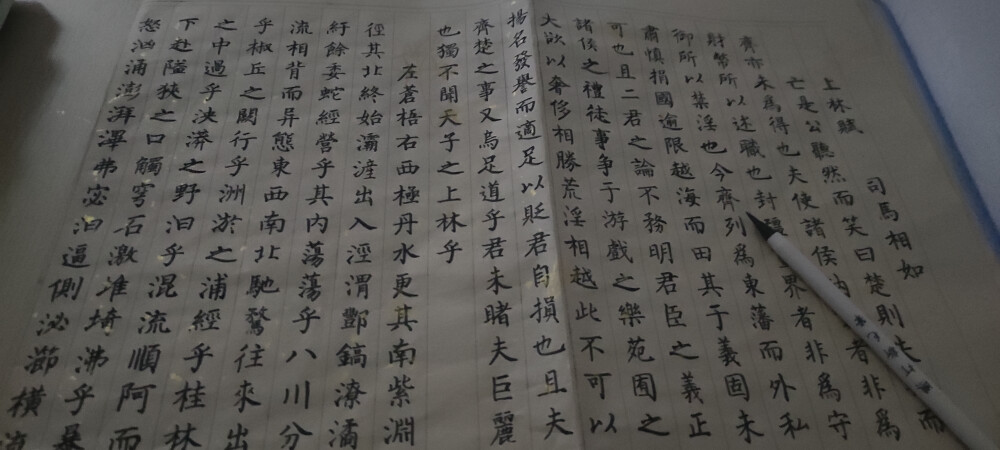 上林賦
司馬相如
亡是公聽然而笑曰楚則夫而
齊亦未為得也夫使諸侯納者非為
財幣所以述職也封疆界者非為守
御所以禁淫也今齊列為東藩而外私
肅慎捐國逾限越海而田其于義固未
可也且二君之論不務明君臣之義正
諸侯之禮徒事爭于游戲之樂苑囿之
大欲以奢侈相勝荒淫相越此不可以
揚名發譽而適足以貶君自損也且夫
齊楚之事又烏足道乎君未睹夫巨麗
也獨不聞天子之上林乎
左蒼梧右西極丹水更其南紫淵
徑其北終始灞滻出入涇渭酆鎬潦潏
紆餘委蛇經營乎其內蕩蕩乎八川分
流相背而异態東西南北馳騖往來出
乎椒丘之闕行乎洲淤之浦經乎桂林
之中過乎泱漭之野汩乎混流順阿而
下赴隘狹之口觸穹石激堆埼沸乎暴
怒洶涌澎湃滭弗宓汩逼側泌瀄橫流